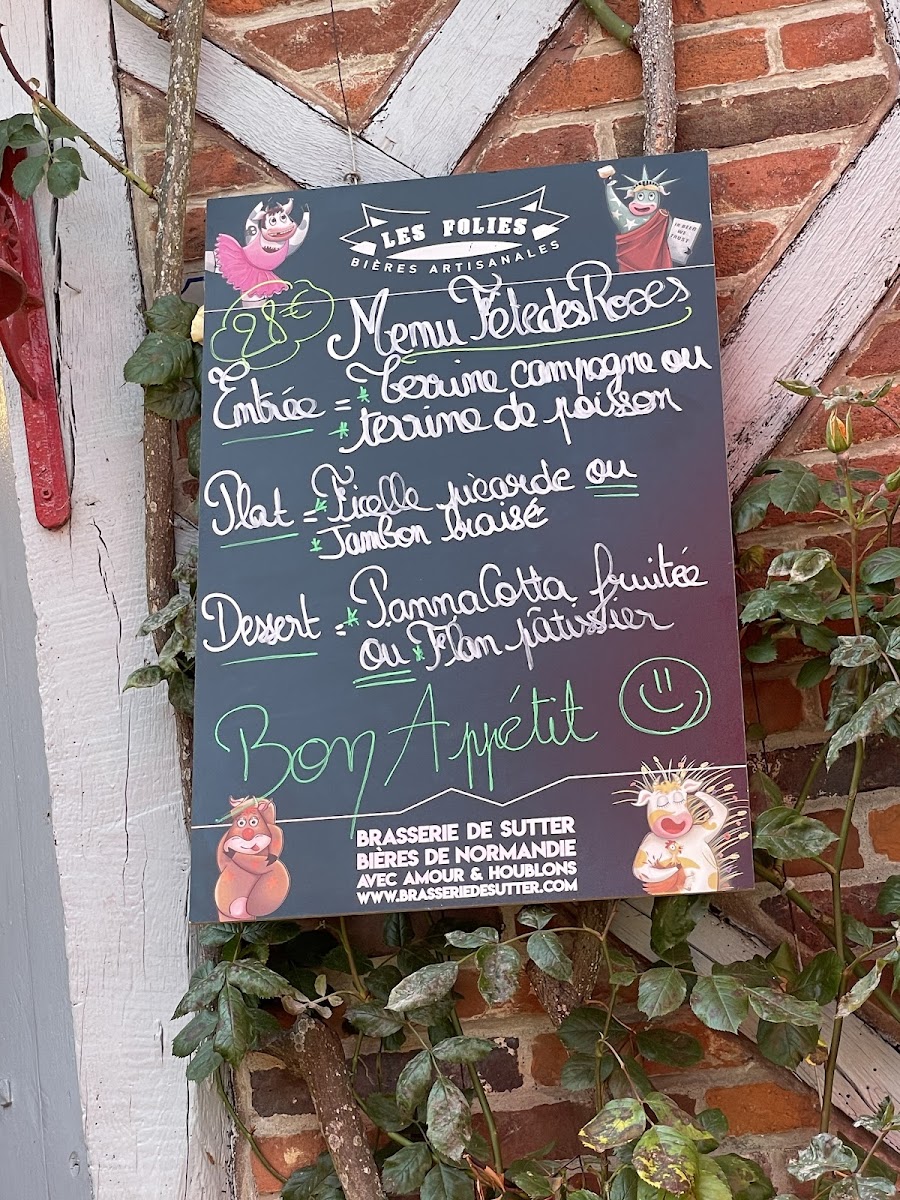 LES FOLIES
BIÈRES ARTISANALES
IN BEER WE TRUST
28€
Menu Fête des Roses
Entrée = * Terrine campagne ou
* terrine de poisson
Plat = * Ficelle picarde ou
* Jambon braisé
Dessert = * Panna Cotta fruitée
ou * Flan pâtissier
Bon Appétit
BRASSERIE DE SUTTER
BIÈRES DE NORMANDIE
AVEC AMOUR & HOUBLONS
WWW.BRASSERIEDESUTTER.COM